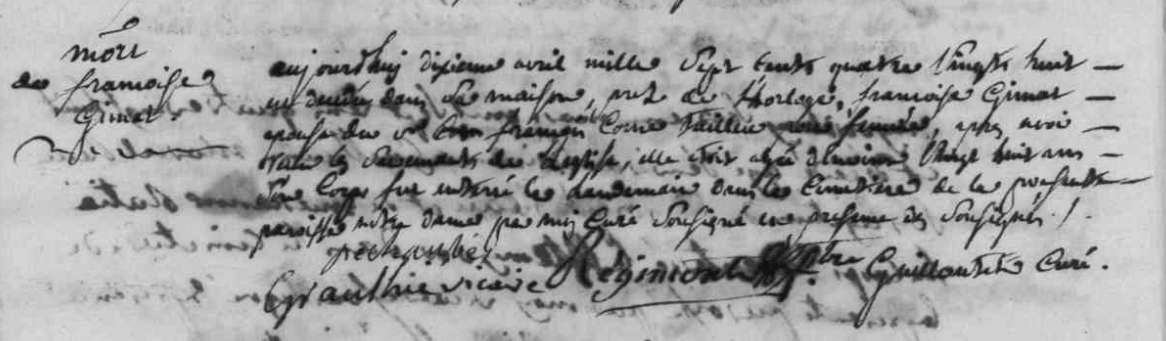 mort
de françoise
Gimat.
aujourdhuy dixieme avril mille sept cents quatre vingts huit
est decedée dans sa maison, prez de l'horloge, françoise Gimat
epouse du sr françois Corne, apres avoir
recu les sacrements de l'eglise, elle etoit agée d'environ vingt huit ans
son corps fut enterré le landemain dans le cimetiere de la presente
paroisse notre dame par moi curé soussigné en presence des soussignés ./.
Gauthie vicaire Régimont ptre Guillautet Curé.